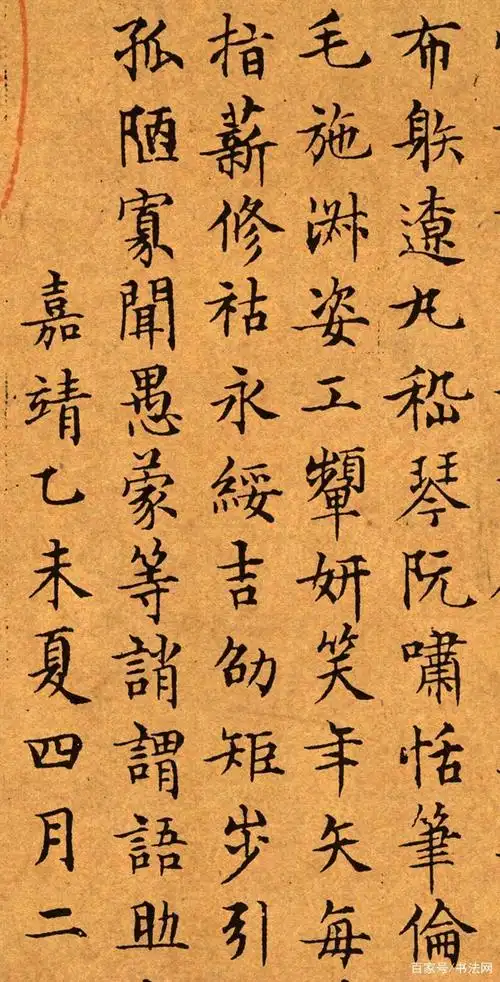 布䠶遼丸嵇琴阮嘯恬筆倫
毛施淑姿工顰妍笑年矢每
指薪修祜永綏吉劭矩步引
孤陋寡聞愚蒙等誚謂語助
嘉靖乙未夏四月二
百家号/书法网